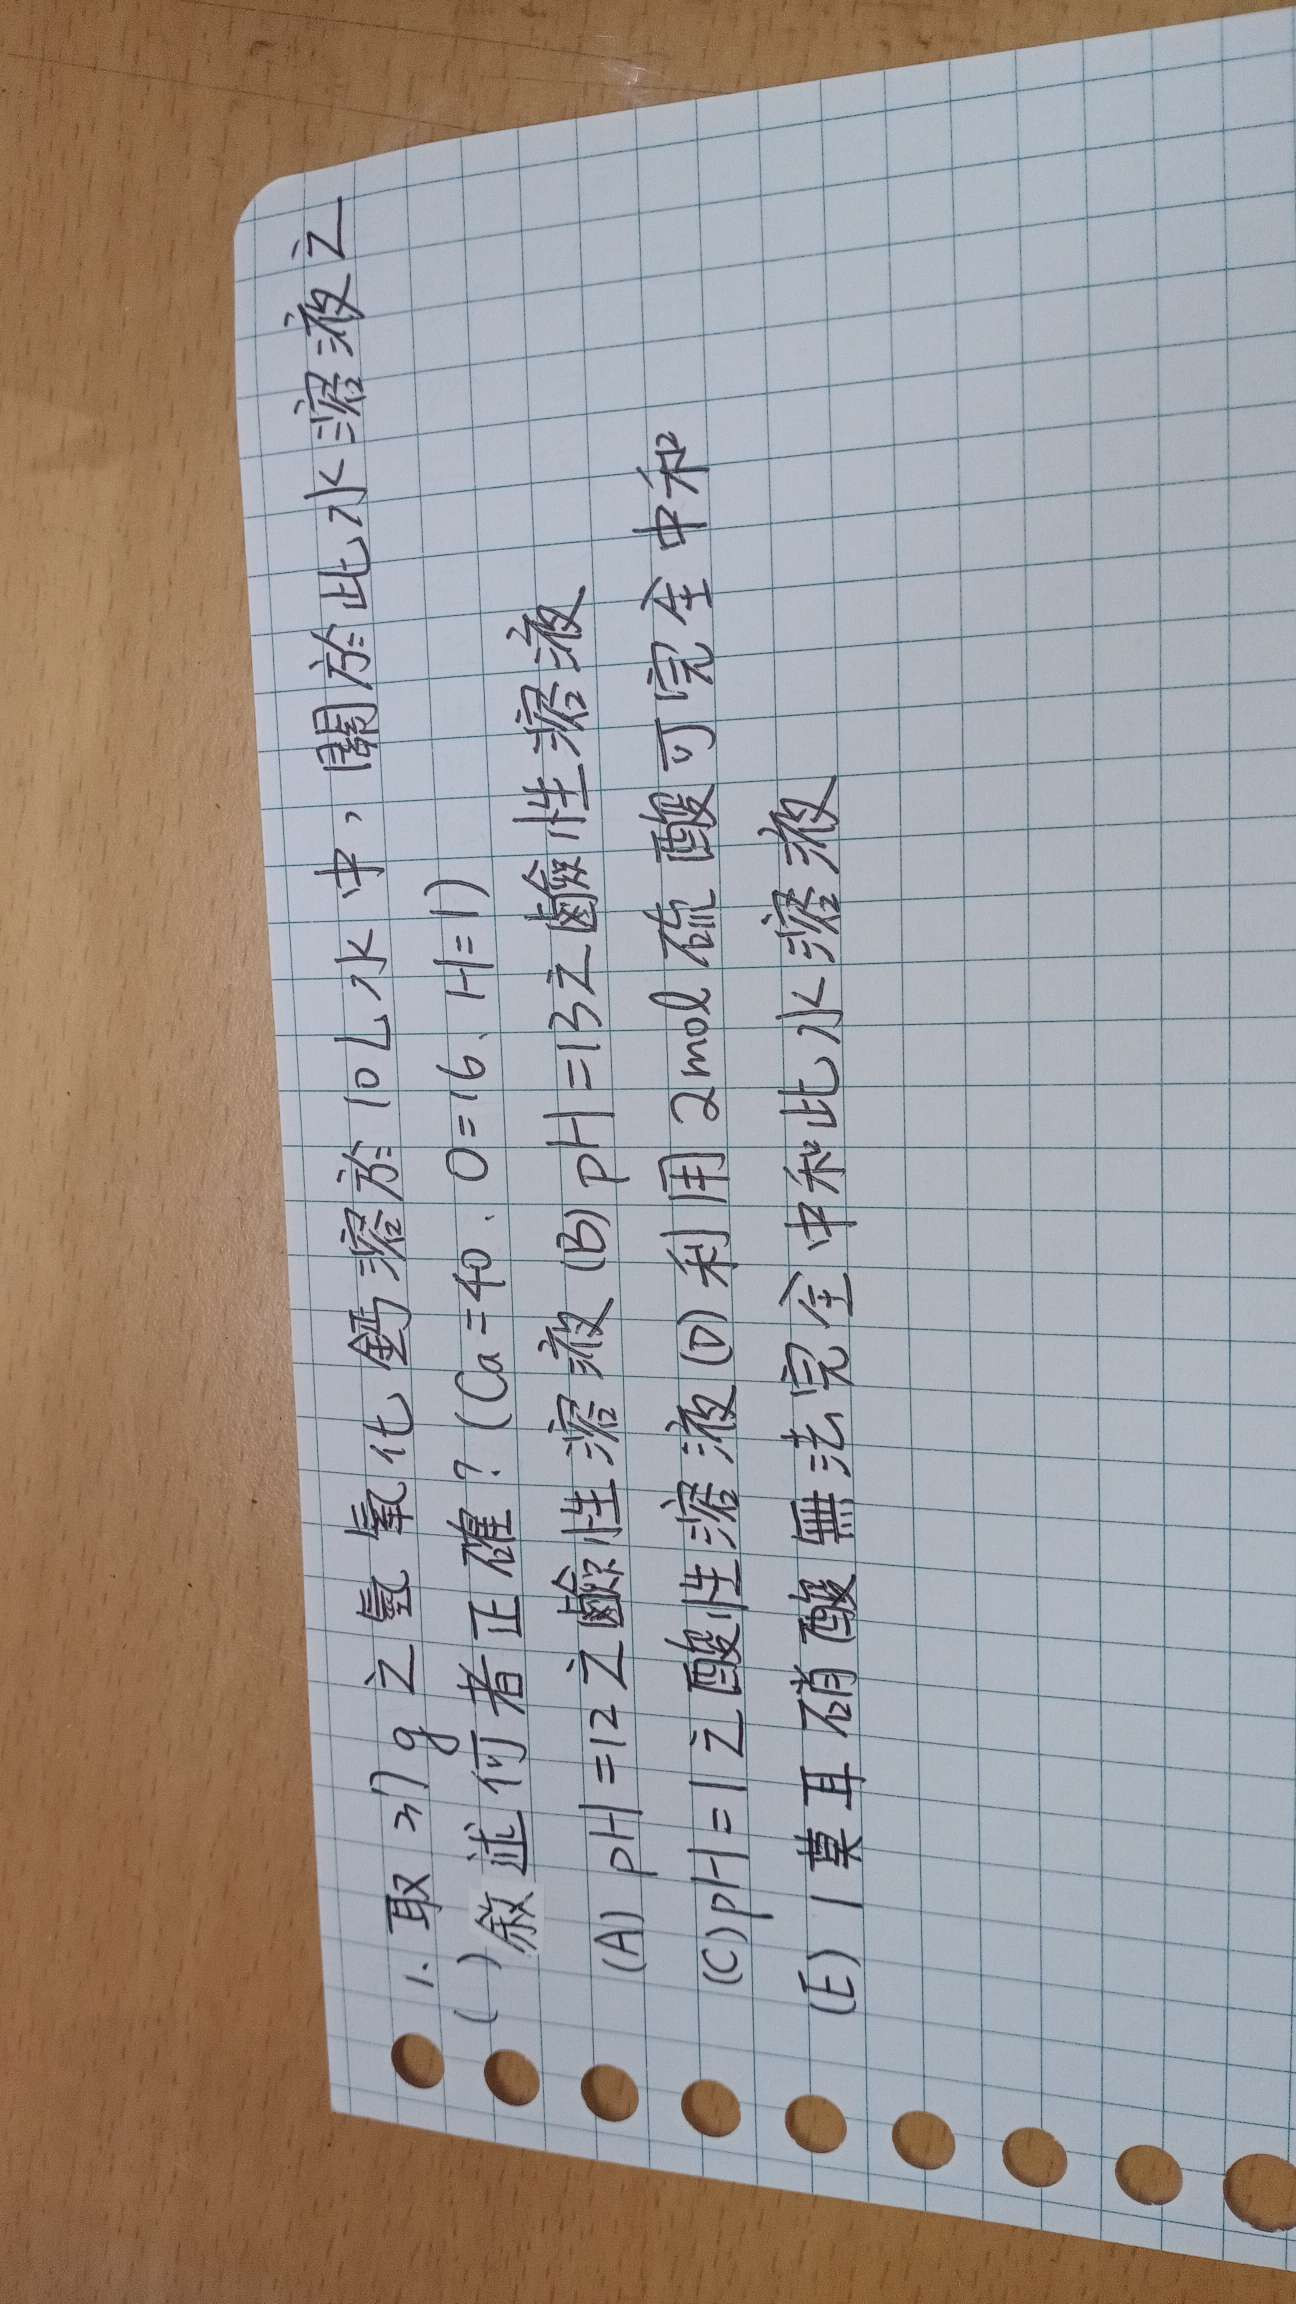 1. 取37g之氫氧化鈣溶於10L水中，關於此水溶液之
( )敘述何者正確？(Ca=40、O=16、H=1)
(A) pH=12之鹼性溶液 (B) pH=13之鹼性溶液
(C) pH=1之酸性溶液 (D) 利用2mol硫酸可完全中和
(E) 1莫耳硝酸無法完全中和此水溶液